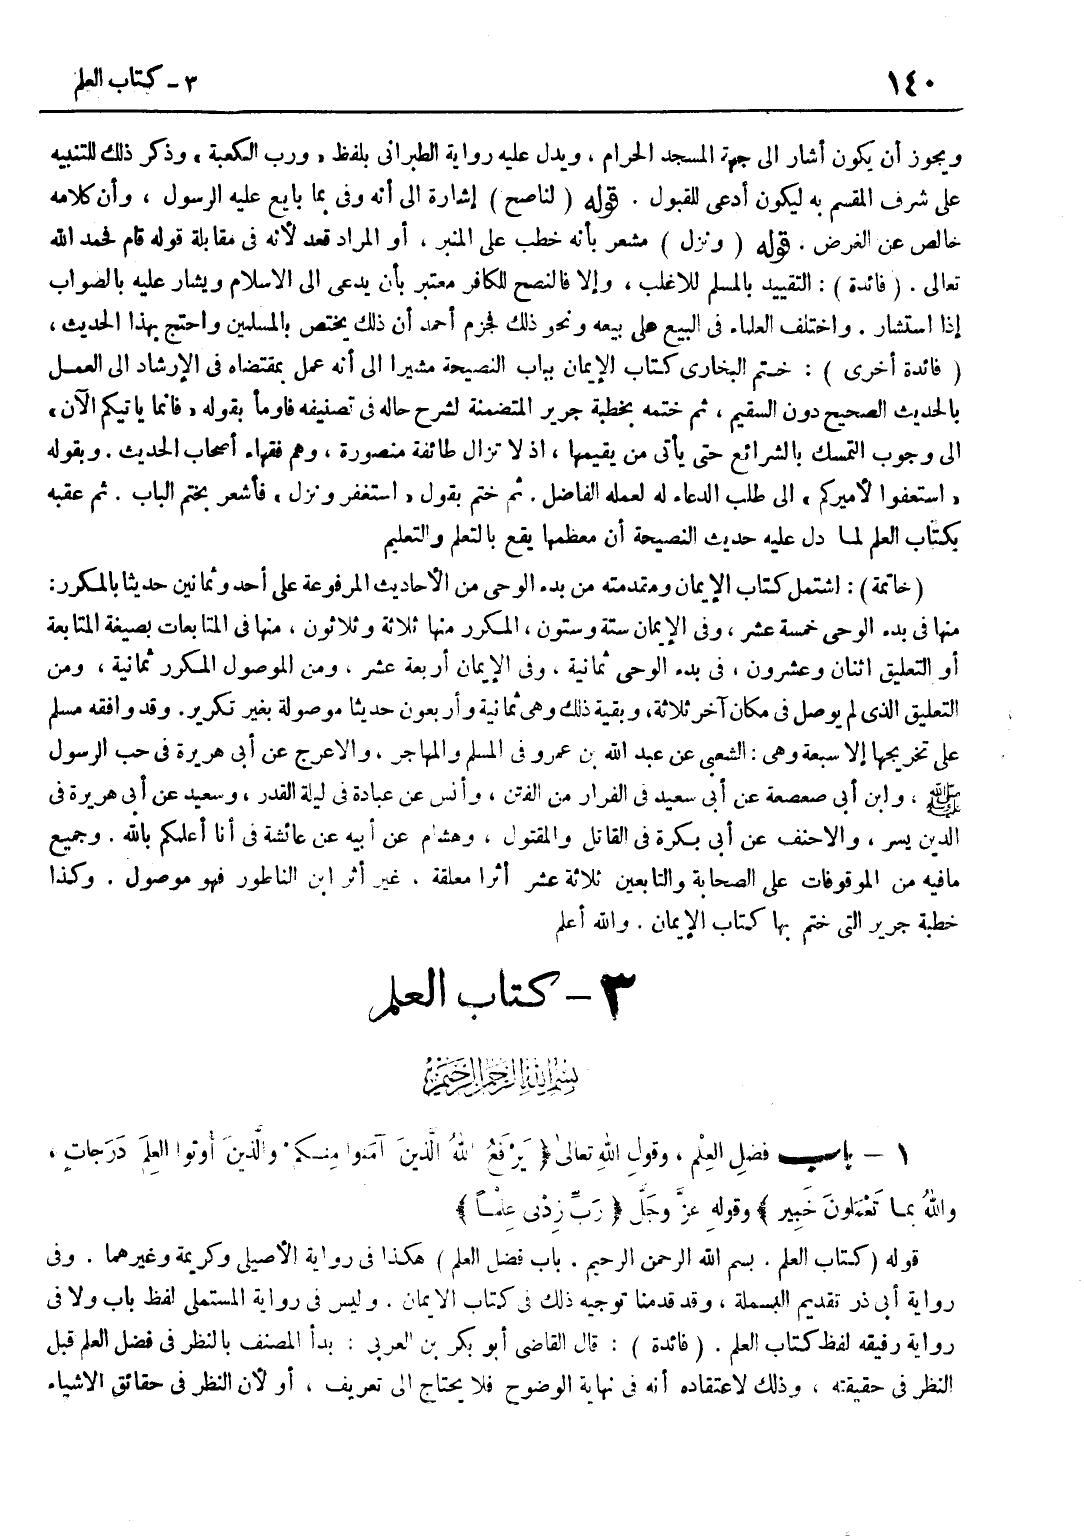 ١٤٠
٣ - كتاب العلم
ويجوز أن يكون أشار الى جهة المسجد الحرام ، ويدل عليه رواية الطبرانى بلفظ « ورب الكعبة » وذكر ذلك للتنبيه
على شرف المقسم به ليكون أدعى للقبول . قوله ( لناصح ) إشارة الى أنه وفى بما بايع عليه الرسول ، وأن كلامه
خالص عن الغرض . قوله ( ونزل ) مشعر بأنه خطب على المنبر ، أو المراد قعد لأنه فى مقابلة قوله قام فحمد الله
تعالى . ( فائدة ) : التقييد بالمسلم للاغلب ، وإلا فالنصح للكافر معتبر بأن يدعى الى الاسلام ويشار عليه بالصواب
إذا استشار . واختلف العلماء فى البيع على بيعه ونحو ذلك فجزم أحمد أن ذلك يختص بالمسلمين واحتج بهذا الحديث ،
( فائدة أخرى ) : ختم البخارى كتاب الإيمان بباب النصيحة مشيرا الى أنه عمل بمقتضاه فى الإرشاد الى العمل
بالحديث الصحيح دون السقيم ، ثم ختمه بخطبة جرير المتضمنة لشرح حاله فى تصنيفه فاومأ بقوله « فانما ياتيكم الآن »
الى وجوب التمسك بالشرائع حتى يأتى من يقيمها ، اذ لا تزال طائفة منصورة ، وهم فقهاء أصحاب الحديث . وبقوله
« استعفوا لأميركم » الى طلب الدعاء له لعمله الفاضل . ثم ختم بقول « استغفر ونزل » فأشعر بختم الباب . ثم عقبه
بكتاب العلم لما دل عليه حديث النصيحة أن معظمها يقع بالتعلم والتعليم
( خاتمة ) : اشتمل كتاب الإيمان ومقدمته من بدء الوحى من الأحاديث المرفوعة على أحد وثمانين حديثا بالمكرر :
منها فى بدء الوحى خمسة عشر ، وفى الإيمان ستة وستون ، المكرر منها ثلاثة وثلاثون ، منها فى المتابعات بصيغة المتابعة
أو التعليق اثنان وعشرون ، فى بدء الوحى ثمانية ، وفى الإيمان أربعة عشر ، ومن الموصول المكرر ثمانية ، ومن
التعليق الذى لم يوصل فى مكان آخر ثلاثة ، وبقية ذلك وهى ثمانية وأربعون حديثا موصولة بغير تكرير . وقد وافقه مسلم
على تخريجها إلا سبعة وهى : الشعبى عن عبد الله بن عمرو فى المسلم والمهاجر ، والاعرج عن أبى هريرة فى حب الرسول
ﷺ ، وابن أبى صعصعة عن أبى سعيد فى الفرار من الفتن ، وأنس عن عبادة فى ليلة القدر ، وسعيد عن أبى هريرة فى
الدين يسر ، والاحنف عن أبى بكرة فى القاتل والمقتول ، وهشام عن أبيه عن عائشة فى أنا أعلمكم بالله . وجميع
مافيه من الموقوفات على الصحابة والتابعين ثلاثة عشر أثرا معلقة . غير أثر ابن الناطور فهو موصول . وكذا
خطبة جرير التى ختم بها كتاب الإيمان . والله أعلم
٣ - كتاب العلم
بسم الله الرحمن الرحيم
١ - باب فضلِ العِلْم ، وقولِ اللهِ تعالىٰ ﴿ يَرْفَعُ اللهُ الَّذينَ آمَنوا مِنكم والَّذينَ أُوتوا العِلمَ دَرَجاتٍ ،
واللهُ بما تَعْمَلونَ خَبير ﴾ وقوله عزَّ وجَلَّ ﴿ رَبِّ زِدْنى عِلْماً ﴾
قوله ( كتاب العلم . بسم الله الرحمن الرحيم . باب فضل العلم ) هكذا فى رواية الأصيلى وكريمة وغيرهما . وفى
رواية أبى ذر تقديم البسملة ، وقد قدمنا توجيه ذلك فى كتاب الايمان . وليس فى رواية المستملى لفظ باب ولا فى
رواية رفيقه لفظ كتاب العلم . ( فائدة ) : قال القاضى أبو بكر بن العربى : بدأ المصنف بالنظر فى فضل العلم قبل
النظر فى حقيقته ، وذلك لاعتقاده أنه فى نهاية الوضوح فلا يحتاج الى تعريف ، أو لأن النظر فى حقائق الاشياء